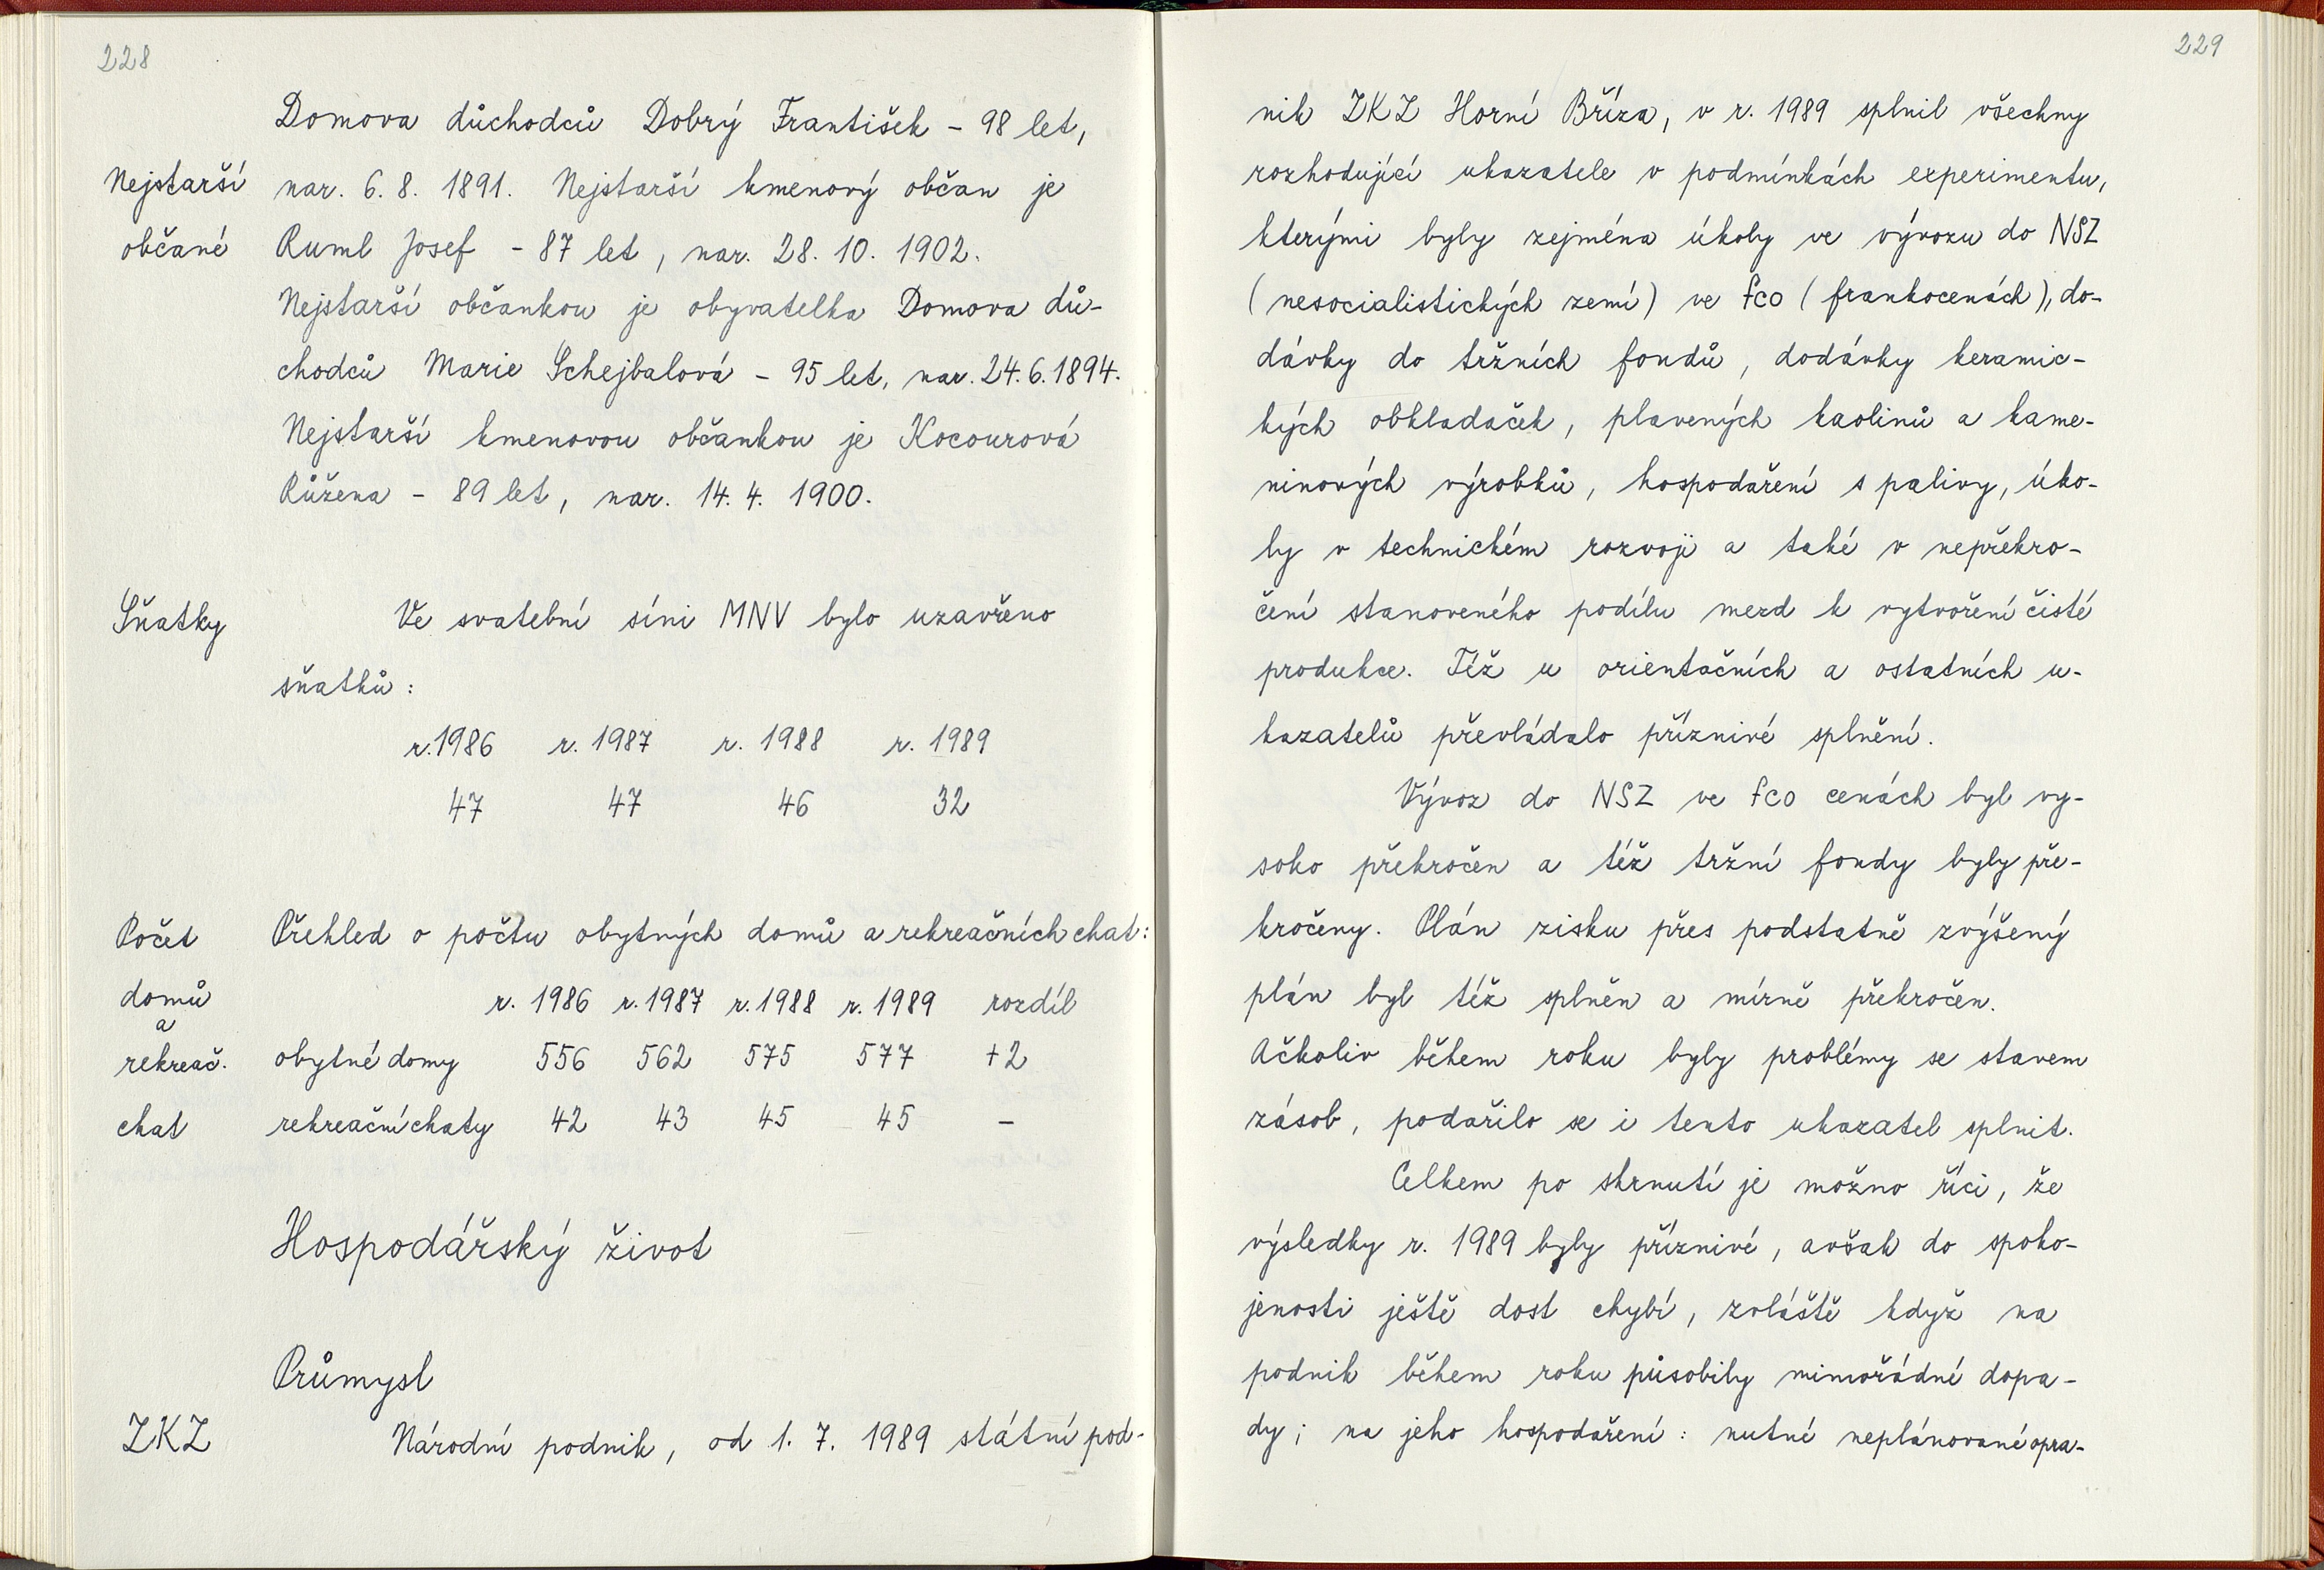 228
Domova důchodců Dobrý František - 98 let,
Nejstarší nar. 6. 8. 1891. Nejstarší kmenový občan je
občané Ruml Josef - 87 let, nar. 28. 10. 1902.
Nejstarší občankou je obyvatelka Domova dů-
chodců Marie Schejbalová - 95 let, nar. 24. 6. 1894.
Nejstarší kmenovou občankou je Kocourová
Růžena - 89 let, nar. 14. 4. 1900.
Sňatky Ve svatební síni MNV bylo uzavřeno
sňatků:
r. 1986 r. 1987 r. 1988 r. 1989
47 47 46 32
Počet Přehled o počtu obytných domů a rekreačních chat:
domů r. 1986 r. 1987 r. 1988 r. 1989 rozdíl
a
rekreač. obytné domy 556 562 575 577 +2
chat rekreační chaty 42 43 45 45 -
Hospodářský život
Průmysl
ZKZ Národní podnik, od 1. 7. 1989 státní pod-
229
nik ZKZ Horní Bříza, v r. 1989 splnil všechny
rozhodující ukazatele v podmínkách experimentu,
kterými byly zejména úkoly ve vývozu do NSZ
(nesocialistických zemí) ve fco (frankocenách), do-
dávky do tržních fondů, dodávky keramic-
kých obkladaček, plavených kaolinů a kame-
ninových výrobků, hospodaření s palivy, úko-
ly v technickém rozvoji a také v nepřekro-
čení stanoveného podílu mezd k vytvoření čisté
produkce. Též u orientačních a ostatních u-
kazatelů převládalo příznivé splnění.
Vývoz do NSZ ve fco cenách byl vy-
soko překročen a též tržní fondy byly pře-
kročeny. Plán zisku přes podstatně zvýšený
plán byl též splněn a mírně překročen.
Ačkoliv během roku byly problémy se stavem
zásob, podařilo se i tento ukazatel splnit.
Celkem po shrnutí je možno říci, že
výsledky r. 1989 byly příznivé, avšak do spoko-
jenosti ještě dost chybí, zvláště když na
podnik během roku působily mimořádné dopa-
dy; na jeho hospodaření: nutné neplánované opra-